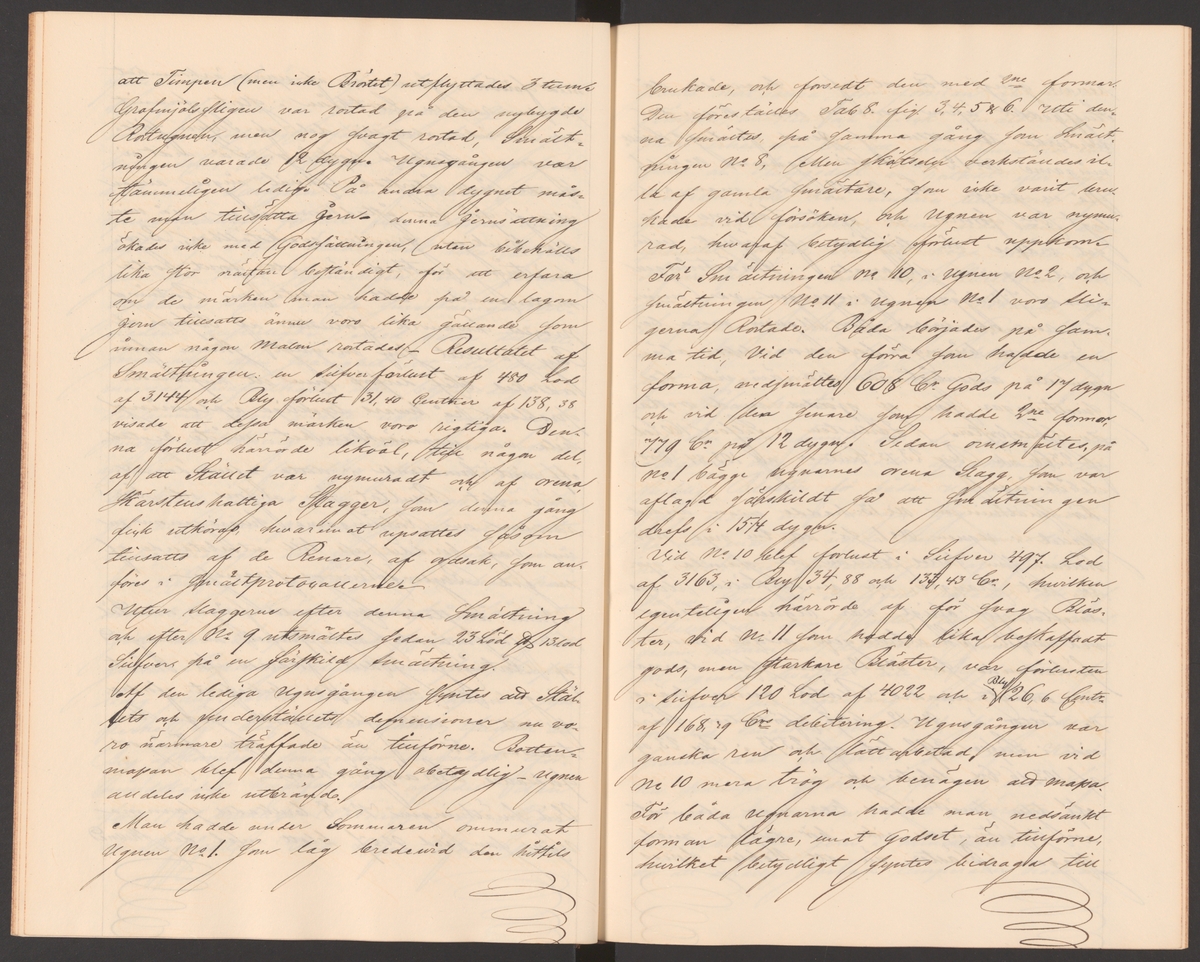 att Timpen (men icke Bröstet) utflyttades 3 tum.
Grafmjöls stigen var rostad på den nybygde
Rostugnen, men nog svagt rostad, Smält-
ningen varade 12 dygn. Ugnsgången var
tämmeligen ledig. På andra dygnet mås-
te man tillsätta Jern – denna Jernsättning
ökades icke med Godssättningen, utan bibehålls
lika stor nästan beständigt, för att erfara
om de märken man hade på en lagom
jern tillsatts ännu voro lika gällande som
innan någon Malm rostades – Resultatet af
Smältningen: en silfverförlust af 480 Lod
af 3144 och Bly förlust 31,40 Centner af 138,38
visade att dessa märken voro rigtiga. Den-
na förlust härrörde likväl, till någon del,
af att Stället var nymuradt och af orena
Skärstenshaltiga Slagger, som denna gång
fick utköras, hvaremot upsattes såsom
tillsatts af de Renare, af ordsak, som an-
föres i Smältprotocollerne.
Utur slaggerne efter denna Smältning
och efter No 9 utsmältes sedan 23 Lod 13 Lod
Silfver på en särskild smältning.
Af den lediga Ugnsgången syntes att Stäl-
lets och underställets dimensioner nu vo-
ro närmare träffade än tillförne. Botten-
massan blef denna gång obetydlig – Ugnen
alldeles icke utbränd.
Man hade under Sommaren ommurat
Ugnen No 1. som låg bredevid den hittils
brukade, och försedt den med 2ne formar.
Den föreställes Tab 8. fig. 3, 4, 5 & 6. Uti den-
na smältes, på samma gång som Smält-
ningen No 8, Men skötseln verkställdes il-
la af gamla Smältare, som icke varit bru-
kade vid försöken, och Ugnen var nymu-
rad, hvaraf betydlig förlust uppkom.
För Smältningen No 10, i Ugnen No 2, och
smältningen No 11 i Ugnen No 1 voro Sli-
gerna Rostade. Båda börjades på sam-
ma tid, Vid den förra som hade en
forma, nedsmältes 608 Cr. Gods på 17 dygn
och vid den senare som hade 2ne formor
779 Cr på 12 dygn. Sedan omsmältes, på
No 1 bägge ugnarnes orena Slagg, som var
aflagd särskildt så att smältningen
drefs i 15 1/4 dygn.
Vid No 10 blef förlust i Silfver 497. Lod
af 3163, i Bly 34,88 och 134,43 Cr., hvilken
egenteligen härrörde af för svag Bläs-
ter, vid No 11 som hadde lika beskaffadt
gods, men starkare Bläster, var förlusten
i silfver 120 Lod af 4022 och i Bly 26,6 Cent.
af 168,29 Cre debitering. Ugnsgången var
ganska ren och lätt arbetad, men vid
No 10 mera trög och benägen att massa.
För båda Ugnarna hadde man nedsänkt
forman lägre, emot Godset, än tillförne,
hvilket betydligt syntes bidraga till